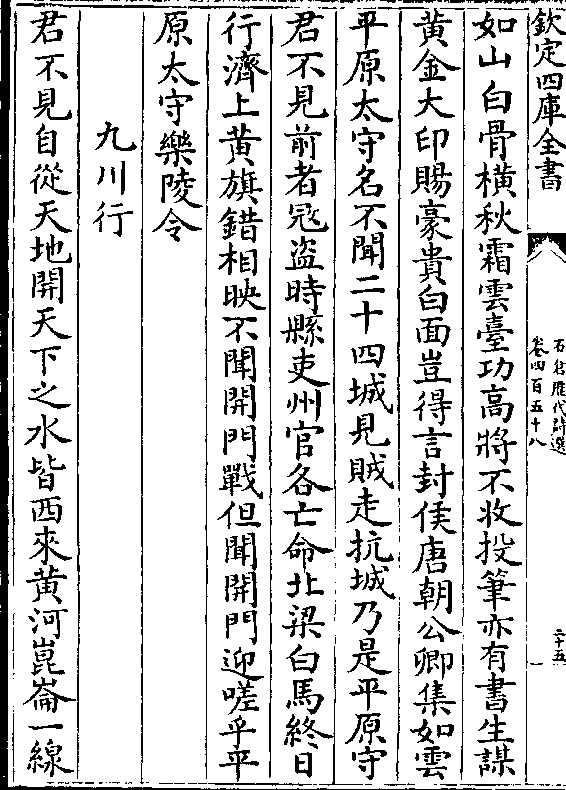 欽定四庫全書
石倉歷代詩選
卷四百五十八
二十五
如山白骨橫秋霜雲臺功高將不收投筆亦有書生謀
黃金大印賜豪貴白面豈得言封侯唐朝公卿集如雲
平原太守名不聞二十四城見賊走抗城乃是平原守
君不見前者冦盗時縣吏州官各亡命北梁白馬終日
行濟上黃旗錯相映不聞開門戰但聞開門迎嗟乎平
原太守樂陵令
九川行
君不見自從天地開天下之水皆西來黃河崑崙一線